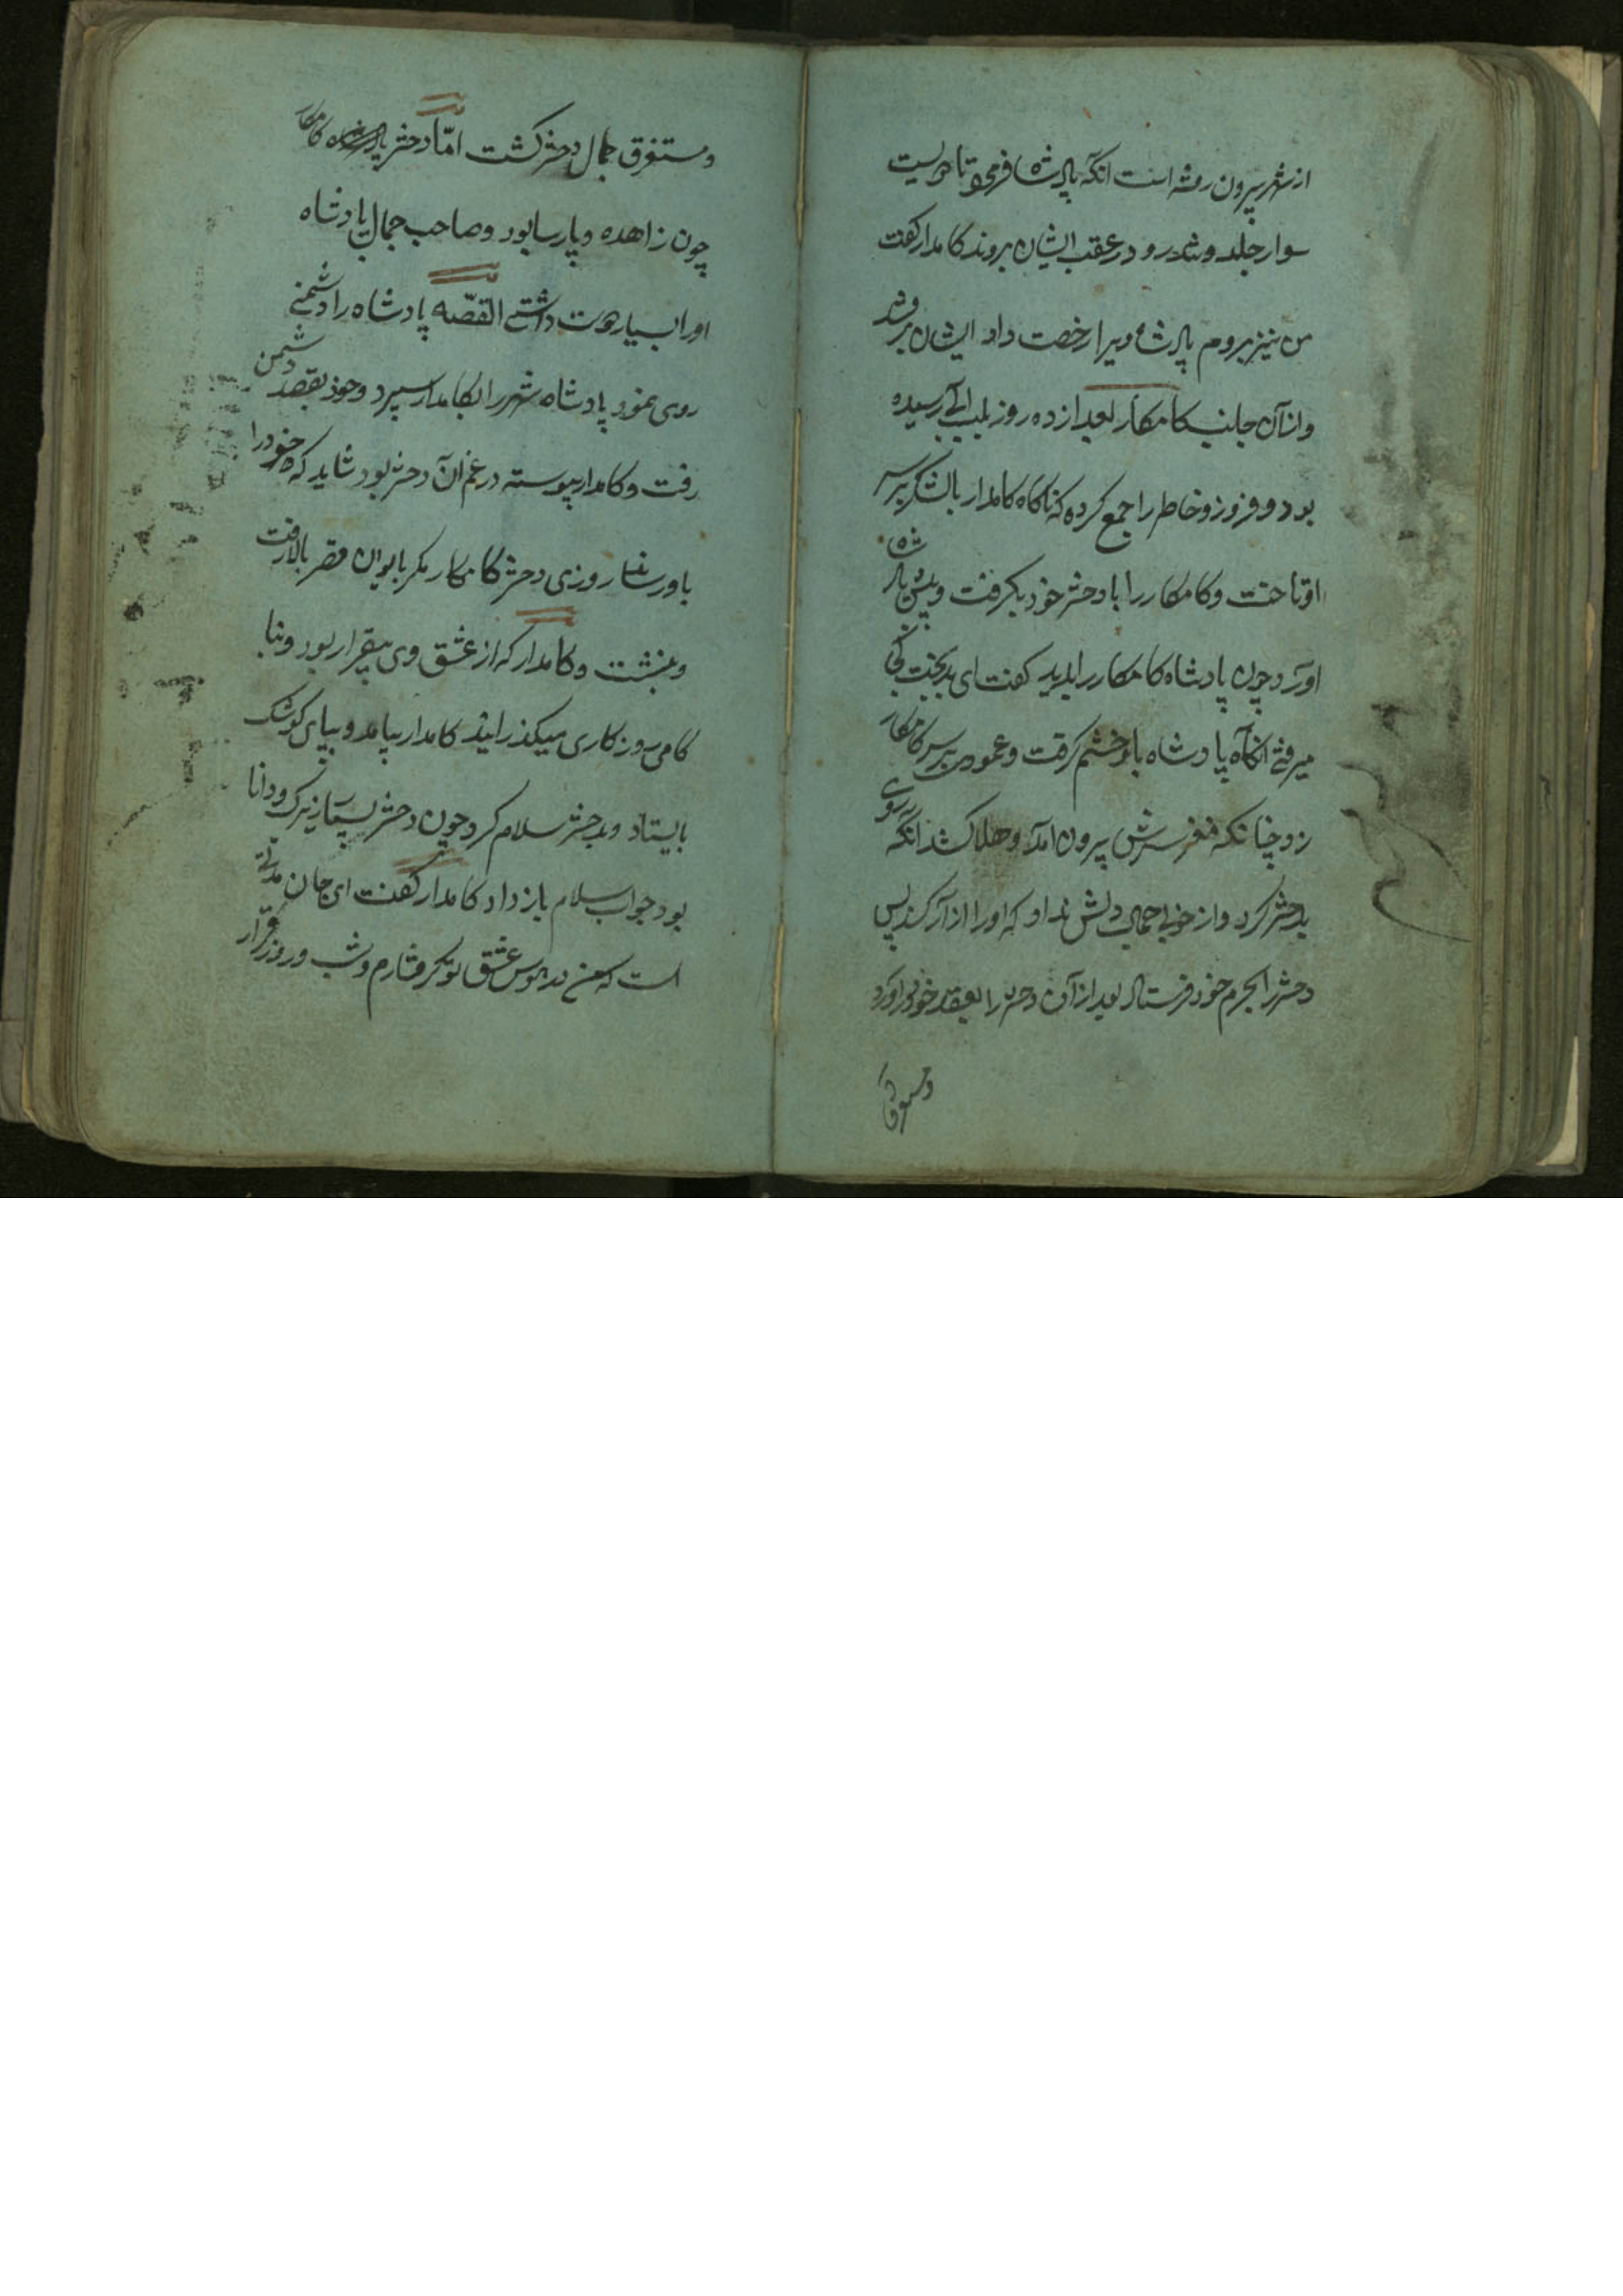 از شهر بیرون رفته است انکه پادشاه فرمود تا دویست
سوار جلد و تند رو در عقب ایشان بروند کامدار کفت
من نیز بروم پادشاه ویرا رخصت داد ایشان برفتند
وازآن جانب کامکار بعد از ده روز بلب آبی رسیده
بود و فرود و خاطر را جمع کرده که ناکاه کامدار بالشکر برسر
او تاخت و کامکار را با دختر خود بکرفت و پیش پادشاه
اورد چون پادشاه کامکار را بدید کفت ای بدبخت کجا
میرفتی انکاه پادشاه باو خشم کرفت و عمود برسر کامکار
زد چنانکه مغز سرش بیرون آمد و هلاک شد انکه روی
بدختر کرد و از خوبی جمال دلش نداد که او را ازار کند پس
دختر را بحرم خود فرستاد بعد از آن دختر را بعقد خود دراورد
ومستغرق
ومستغرق جمال دختر کشت امّا دختر کامکار
چون زاهده و پارسا بود و صاحب جمال پادشاه
اورا بسیار دوست داشتی القصّه پادشاه را دشمنی
روی نمود پادشاه شهر را بکامدار سپرد وخود بقصد دشمن
رفت و کامدار پیوسته در غم آن دختر بود شاید که خود را
باو رساند روزی دختر کامکار مکر بایوان قصر بالا رفت
و بنشست و کامدار که از عشق وی بیقرار بود و بنا
کامی روزکاری میکذرانید کامدار بیامد و بپای کوشک
بایستاد و بدختر سلام کرد چون دختر بسیار زیرک ودانا
بود جواب سلام باز داد کامدار کفت ای جان مدتی
است که من در هوس عشق تو کرفتارم و شب و روز قرار